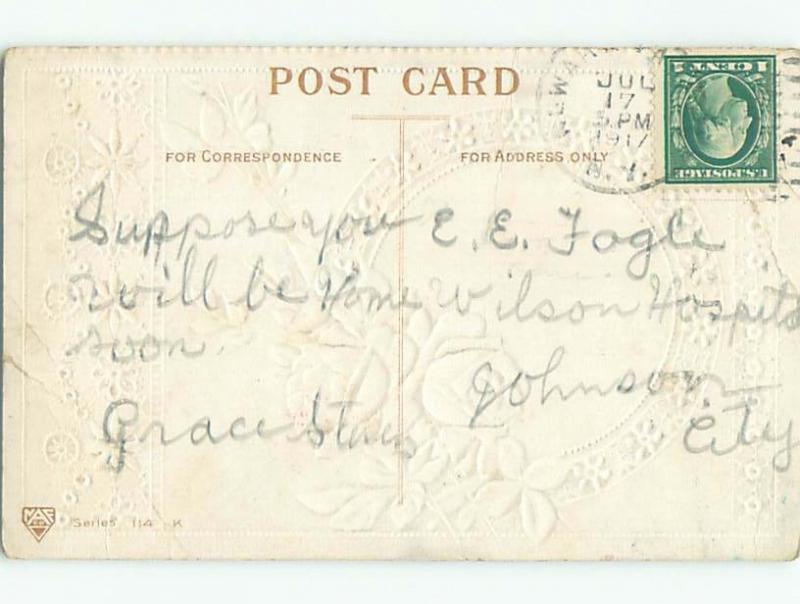 POST CARD
JUL
17
5 PM
1917
N.Y.
1 CENT 1
U.S. POSTAGE
FOR CORRESPONDENCE
FOR ADDRESS ONLY
Suppose you
will be home
soon.
Grace
E. E. Fogle
Wilson Hospita
Johnson
City
Series 114 K